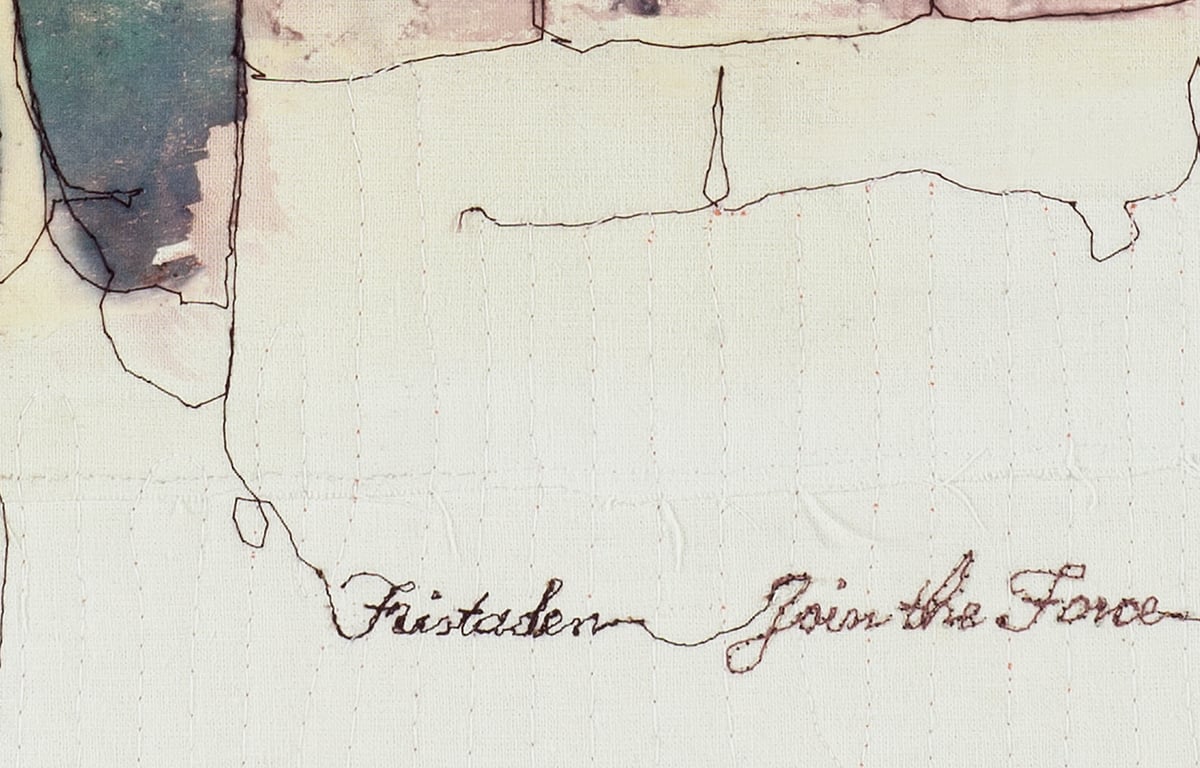 Fristaden Join the Force